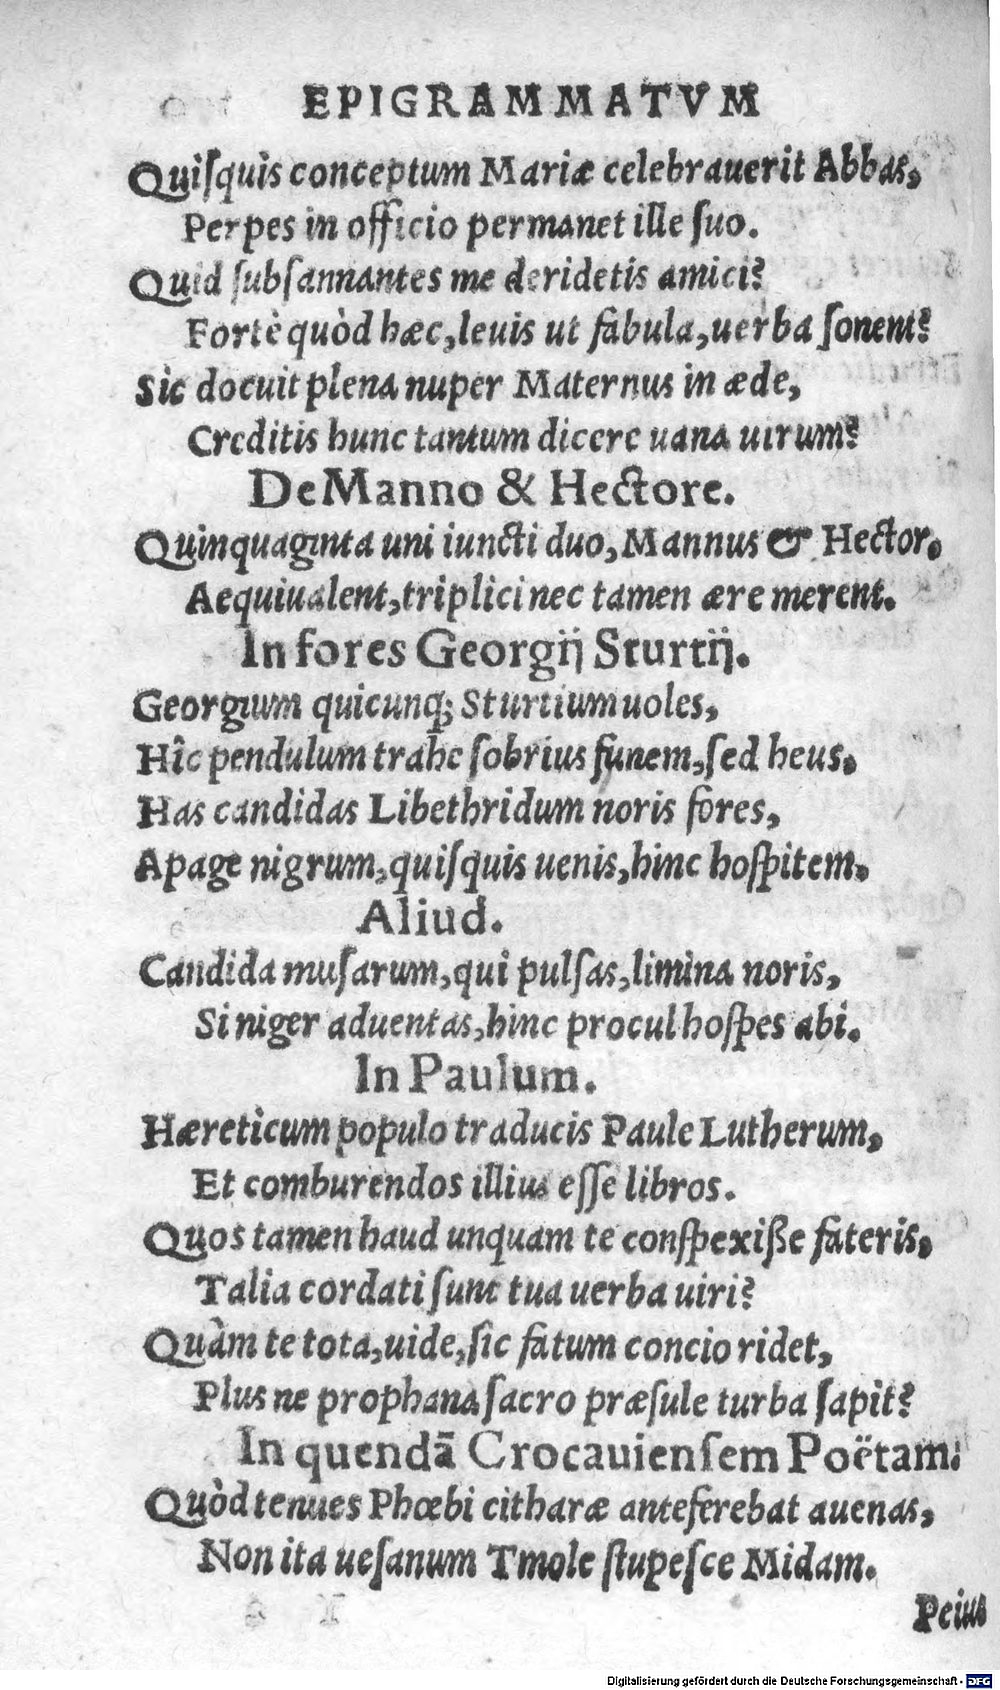 EPIGRAMMATVM
Quiſquis conceptum Mariæ celebrauerit Abbas,
Perpes in officio permanet ille ſuo.
Quid ſubſannantes me deridetis amici?
Fortè quòd hæc, leuis ut fabula, uerba ſonent?
Sic docuit plena nuper Maternus in æde,
Creditis hunc tantum dicere uana uirum?
De Manno & Hectore.
Quinquaginta uni iuncti duo, Mannus & Hector.
Aequiualent, triplici nec tamen ære merent.
In fores Georgij Sturtij.
Georgium quicunq; Sturtium uoles,
Hîc pendulum trahe ſobrius funem, ſed heus.
Has candidas Libethridum noris fores,
Apage nigrum, quiſquis uenis, hinc hoſpitem.
Aliud.
Candida muſarum, qui pulſas, limina noris,
Si niger aduentas, hinc procul hoſpes abi.
In Paulum.
Hæreticum populo traducis Paule Lutherum,
Et comburendos illius eſſe libros.
Quos tamen haud unquam te conſpexiße fateris,
Talia cordati ſunt tua uerba uiri?
Quàm te tota, uide, ſic fatum concio ridet,
Plus ne prophana ſacro præſule turba ſapit?
In quendā Crocauienſem Poëtam.
Quòd tenues Phœbi citharæ anteferebat auenas,
Non ita ueſanum Tmole ſtupeſce Midam.
Peius
Digitalisierung gefördert durch die Deutsche Forschungsgemeinschaft - DFG